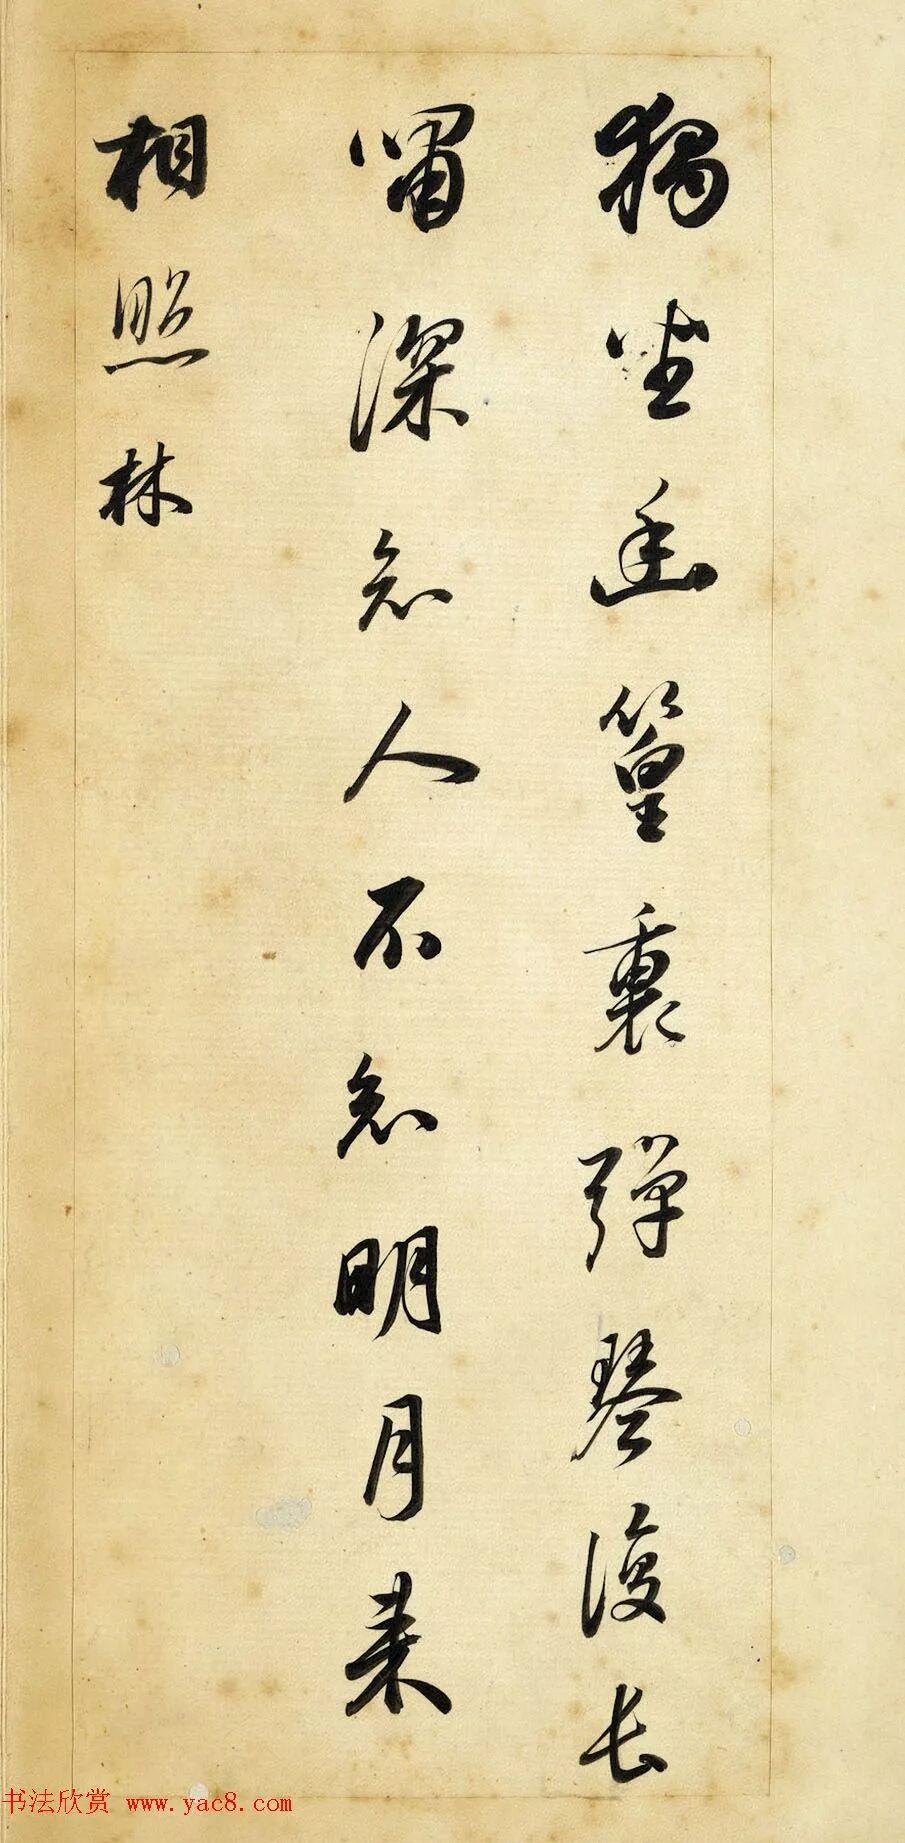 獨坐幽篁裏彈琴復長
嘯深知人不知明月來
相照林
书法欣赏 www.yac8.com